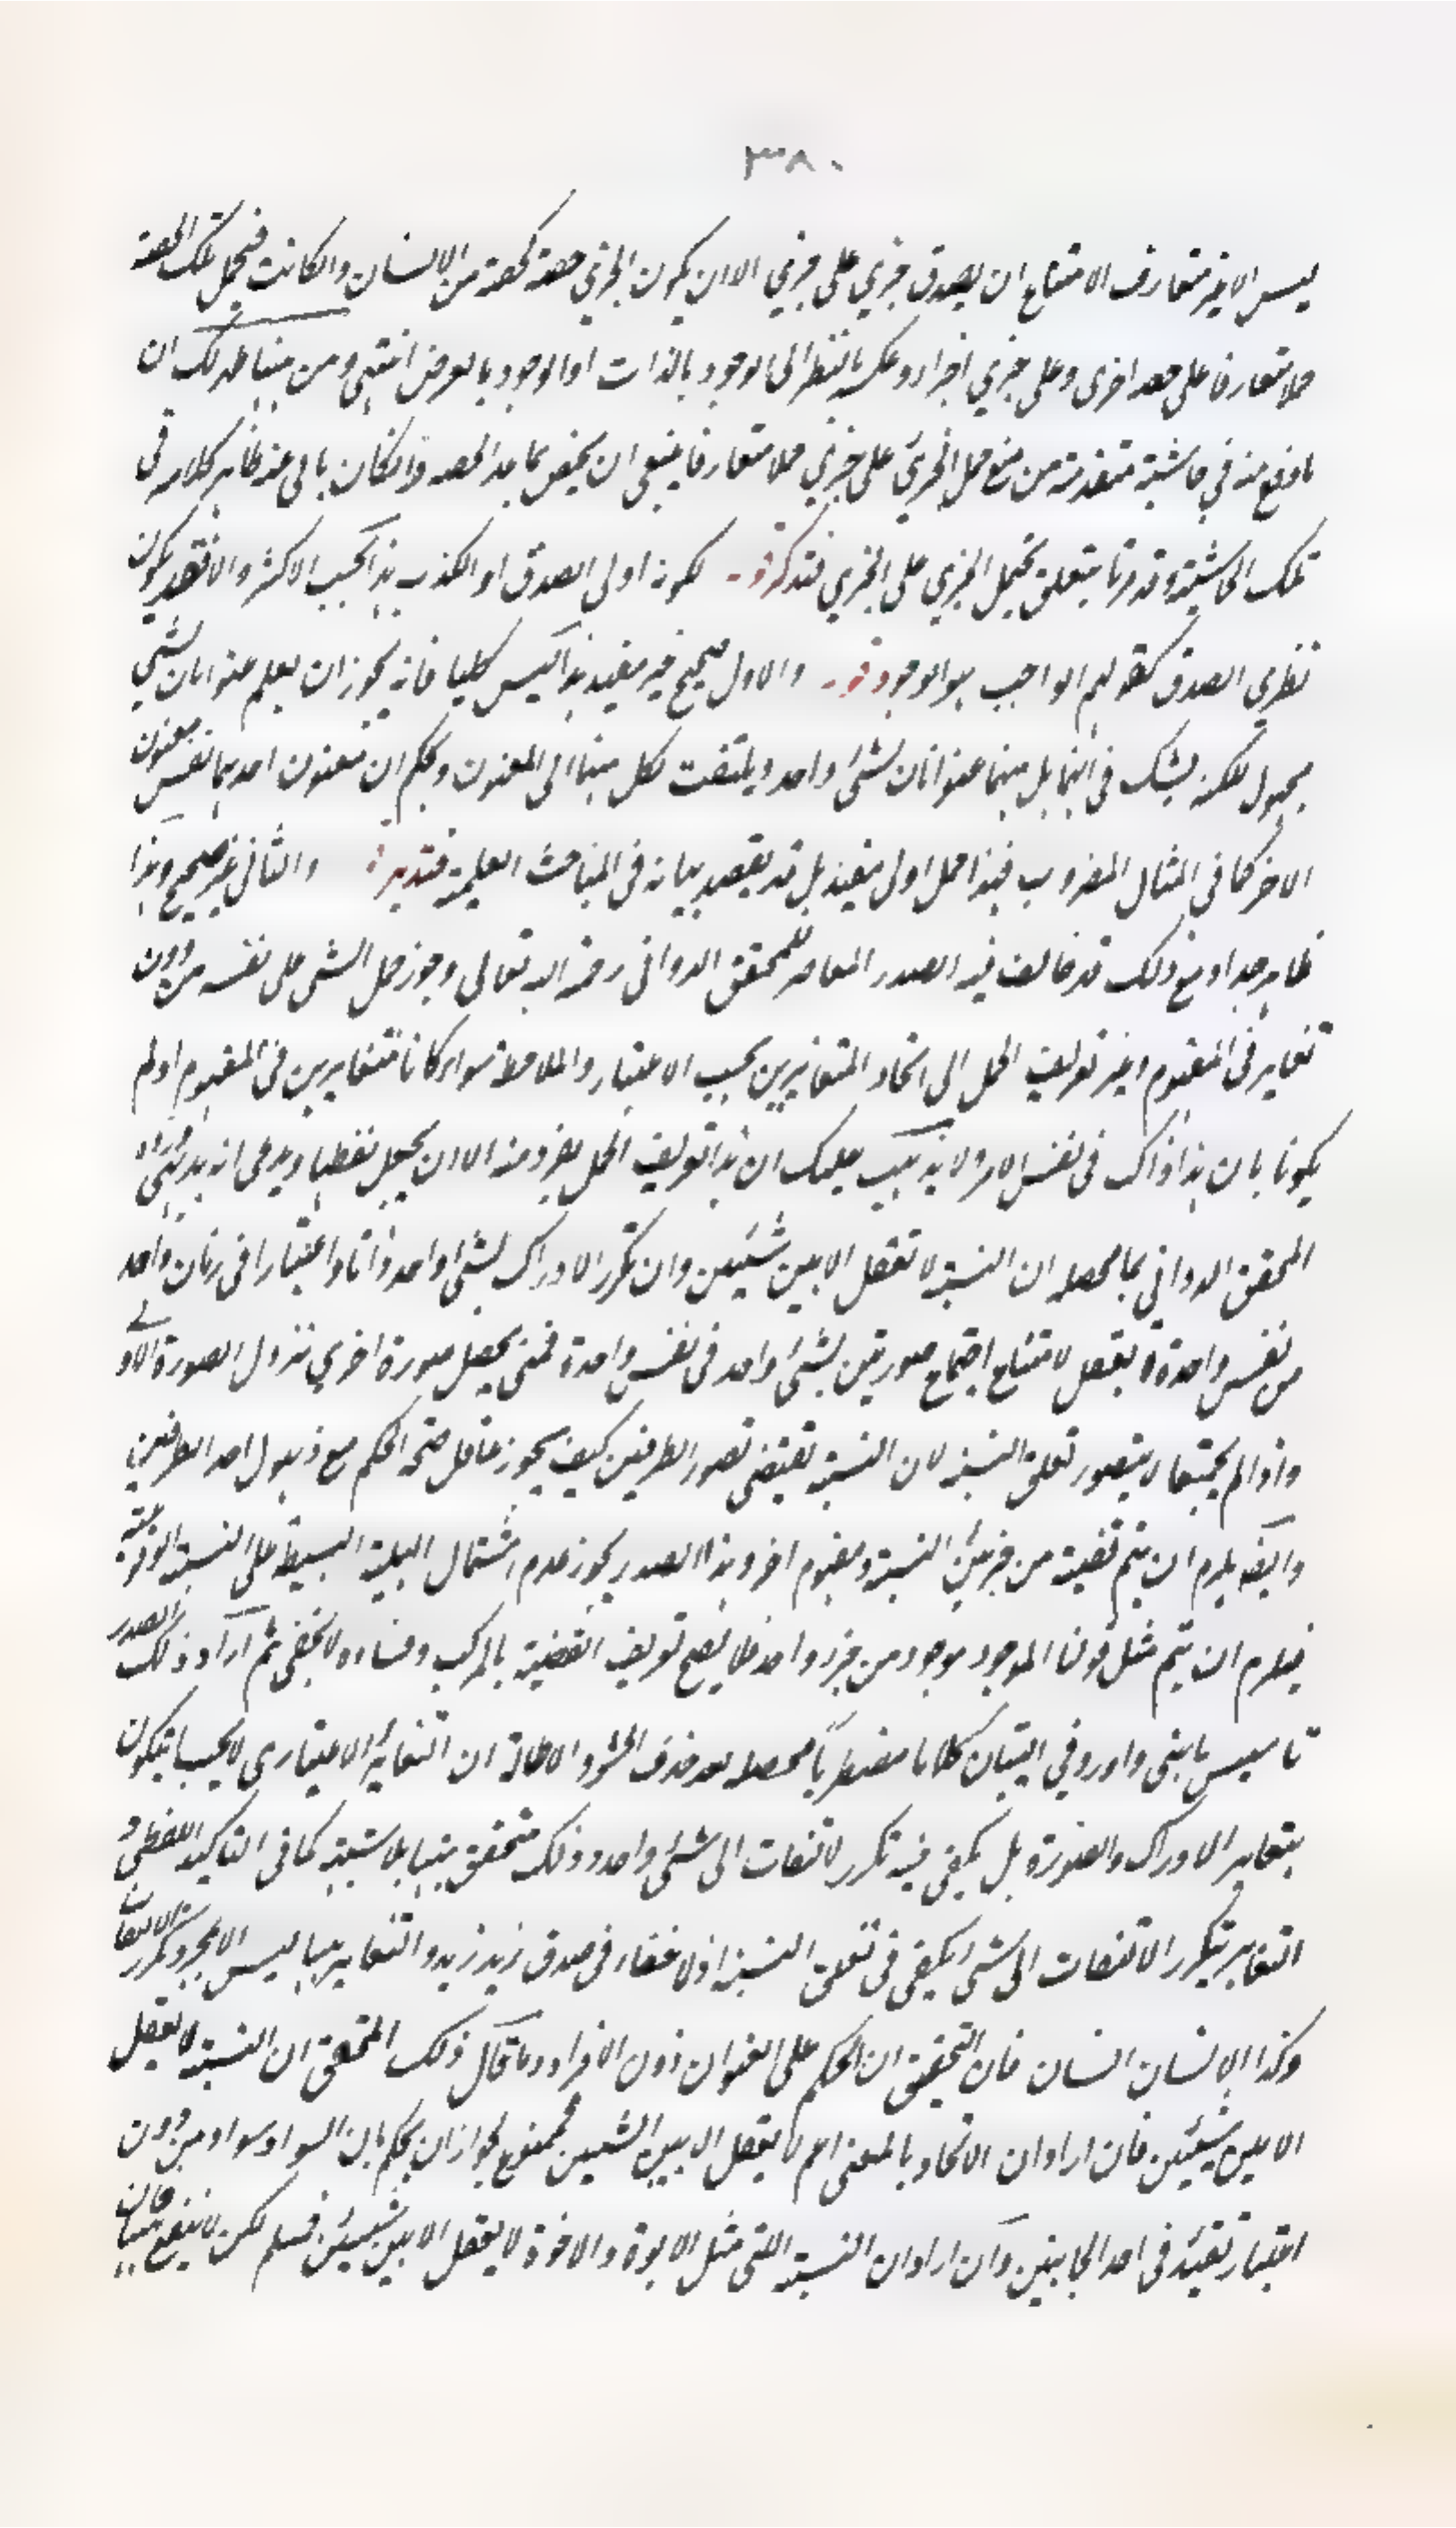 ٣٨٠
ليس الا غير متعارف الامتناع ان يصدق جزئي على جزئي الا ان يكون الجزئي حصة كحصة من الانسان والكاتب فيحمل تلك الحصة
حملا متعارفا على حصة اخرى وعلى جزئي اخر او عكسه بالنظر الى الوجود بالذات او الوجود بالعرض انتهى ومن هنا ظهر لك ان
ما وقع منه في حاشية متقدمة من منع حمل الجزئي على جزئي حملا متعارفا ينبغي ان يخص بما عدا الحصة وان كان يابى عنه ظاهر كلامه في
تلك الحاشية وقد مر ما يتعلق بحمل الجزئي على الجزئي فتذكر قوله لكونه اولى الصدق او الكذب هذا بحسب الاكثر والا فقد يكون
نظري الصدق كقولهم الواجب هو الوجود قوله والاول صحيح غير مفيد هذا ليس كليا فانه يجوز ان يعلم عنوانان لشئ
مجهول لكنه يشك في انهما هل هما عنوانان لشئ واحد ويلتفت بكل منها الى المعنون ويحكم ان معنون احدهما نفس معنون
الاخر كما في المثال المضروب فهذا حمل اولى مفيد بل قد يقصد بيانه في المباحث العلمية فتدبر والثاني غير صحيح وهذا
ظاهر جدا ومع ذلك قد خالف فيه الصدر المعاصر للمحقق الدواني رحمة الله تعالى وجوز حمل الشئ على نفسه من دون
تغاير في المفهوم وغير تعريف الحمل الى اتحاد المتغايرين بحسب الاعتبار والملاحظة سواء كانا متغايرين في المفهوم او لم
يكونا بان هذا ذاك في نفس الامر ولا يذهب عليك ان هذا تعريف الحمل بفرد منه الا ان يجعل لفظيا ويدعى انه بديهي ورده
المحقق الدواني بما محصله ان النسبة لا تعقل الا بين شيئين وان تكرر الادراك لشئ واحد ذاتا واعتبارا في زمان واحد
من نفس واحدة لا يعقل لامتناع اجتماع صورتين لشئ واحد في نفس واحدة فمتى يحصل صورة اخرى تزول الصورة الاولى
واذا لم يجتمعا لا يتصور تعلق النسبة لان النسبة تقتضي تصور الطرفين كيف يجوز عاقل صحة الحكم مع ذهول احد الطرفين
وايضا يلزم ان يتم قضية من جزئين النسبة ومفهوم اخر وهذا الصدر يجوز عدم اشتمال الهلية البسيطة على النسبة الوقوعية
فيلزم ان يتم مثل قولنا الموجود موجود من جزء واحد فلا يصح تعريف القضية بالمركب وفساده لا يخفى ثم اراد ذلك الصدر
تاسيس ما بنى واورد في البيان كلاما مضطربا محصله بعد حذف الحشو والاطالة ان التغاير الاعتباري لا يجب ان يكون
بتغاير الادراك والصورة بل يكفي فيه تكرر الالتفات الى شئ واحد وذلك متحقق ههنا بلا شبهة كما في التاكيد اللفظي و
التغاير بتكرر الالتفات الى شئ يكفي في تعلق النسبة اذ لا خفاء في صدق زيد زيد والتغاير ههنا ليس الا بمجرد تكرر الالتفات
وكذا الانسان انسان فان التحقيق ان الحكم على العنوان دون الافراد وما قال ذلك المحقق ان النسبة لا يعقل
الا بين شيئين فان اراد ان الاتحاد بالمعنى الاعم لا يعقل الا بين الشيئين فممنوع لجواز ان يحكم بان السواد سواد من دون
اعتبار تقييد في احد الجانبين وان اراد ان النسبة التي مثل الابوة والاخوة لا يعقل الا بين شيئين فمسلم لكن لا ينفع ههنا فان